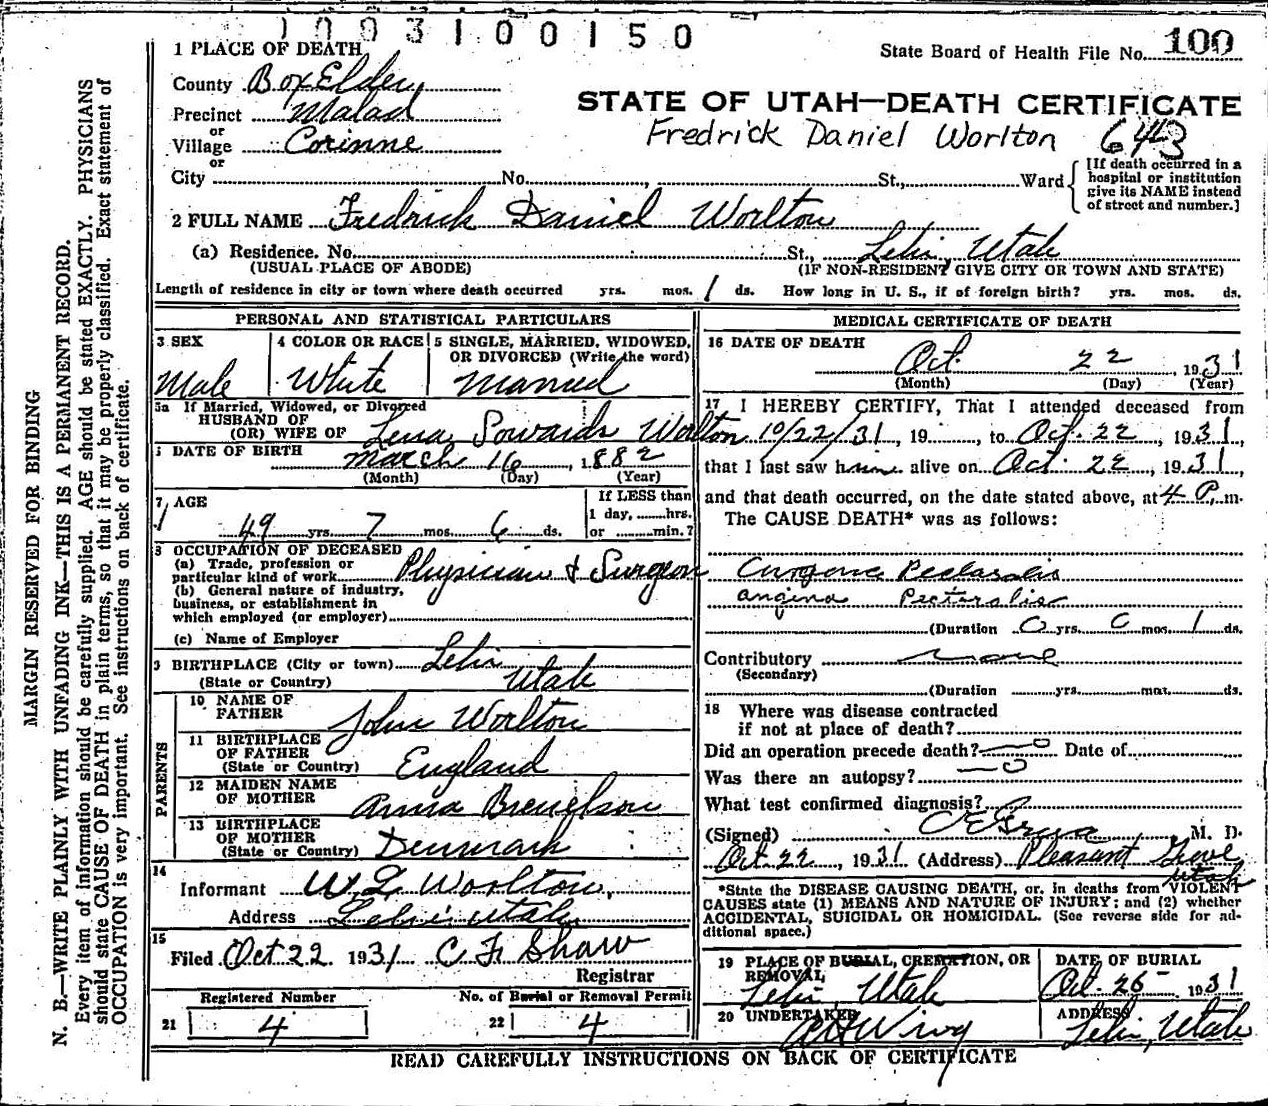 1003100150
1 PLACE OF DEATH
State Board of Health File No. 100
County Box Elder
STATE OF UTAH—DEATH CERTIFICATE
Precinct Malad
or
Fredrick Daniel Worlton 643
Village Corinne
or
City No. St., Ward
[If death occurred in a
hospital or institution
give its NAME instead
of street and number.]
2 FULL NAME Fredrick Daniel Worlton
(a) Residence. No. St., Lehi, Utah
(USUAL PLACE OF ABODE) (IF NON-RESIDENT GIVE CITY OR TOWN AND STATE)
Length of residence in city or town where death occurred yrs. mos. 1 ds. How long in U. S., if of foreign birth? yrs. mos. ds.
PERSONAL AND STATISTICAL PARTICULARS
3 SEX
Male
4 COLOR OR RACE
White
5 SINGLE, MARRIED, WIDOWED,
OR DIVORCED (Write the word)
Married
5a If Married, Widowed, or Divorced
HUSBAND OF
(OR) WIFE OF Lena Sowards Worlton
DATE OF BIRTH March 16, 1882
(Month) (Day) (Year)
7 AGE
49 yrs. 7 mos. 6 ds.
If LESS than
1 day, hrs.
or min.?
8 OCCUPATION OF DECEASED
(a) Trade, profession or
particular kind of work Physician & Surgeon
(b) General nature of industry,
business, or establishment in
which employed (or employer)
(c) Name of Employer
9 BIRTHPLACE (City or town) Lehi
(State or Country) Utah
PARENTS
10 NAME OF
FATHER John Worlton
11 BIRTHPLACE
OF FATHER
(State or Country) England
12 MAIDEN NAME
OF MOTHER Anna
13 BIRTHPLACE
OF MOTHER
(State or Country) Denmark
14
Informant Worlton,
Address Lehi Utah
15
Filed Oct 22 1931 C F Shaw
Registrar
Registered Number
21 4
No. of Burial or Removal Permit
22 4
MEDICAL CERTIFICATE OF DEATH
16 DATE OF DEATH
Oct. 22, 1931
(Month) (Day) (Year)
17 I HEREBY CERTIFY, That I attended deceased from
10/22/31, 19, to Oct. 22, 1931,
that I last saw him alive on Oct. 22, 1931,
and that death occurred, on the date stated above, at 4 P. m.
The CAUSE DEATH* was as follows:
Pectaralis
angina Pectoralis
(Duration 0 yrs. 0 mos. 1 ds.
Contributory none
(Secondary)
(Duration yrs. mos. ds.
18 Where was disease contracted
if not at place of death?
Did an operation precede death? no Date of
Was there an autopsy? no
What test confirmed diagnosis?
(Signed) M. D.
Oct 22, 1931 (Address) Pleasant Grove,
Utah
*State the DISEASE CAUSING DEATH, or, in deaths from VIOLENT
CAUSES state (1) MEANS AND NATURE OF INJURY; and (2) whether
ACCIDENTAL, SUICIDAL OR HOMICIDAL. (See reverse side for ad-
ditional space.)
19 PLACE OF BURIAL, CREMATION, OR
REMOVAL
Lehi, Utah
DATE OF BURIAL
Oct. 25 1931
20 UNDERTAKER
Wing
ADDRESS
Lehi, Utah
READ CAREFULLY INSTRUCTIONS ON BACK OF CERTIFICATE
MARGIN RESERVED FOR BINDING
N. B.—WRITE PLAINLY WITH UNFADING INK—THIS IS A PERMANENT RECORD.
Every item of information should be carefully supplied. AGE should be stated EXACTLY. PHYSICIANS
should state CAUSE OF DEATH in plain terms, so that it may be properly classified. Exact statement of
OCCUPATION is very important. See instructions on back of certificate.